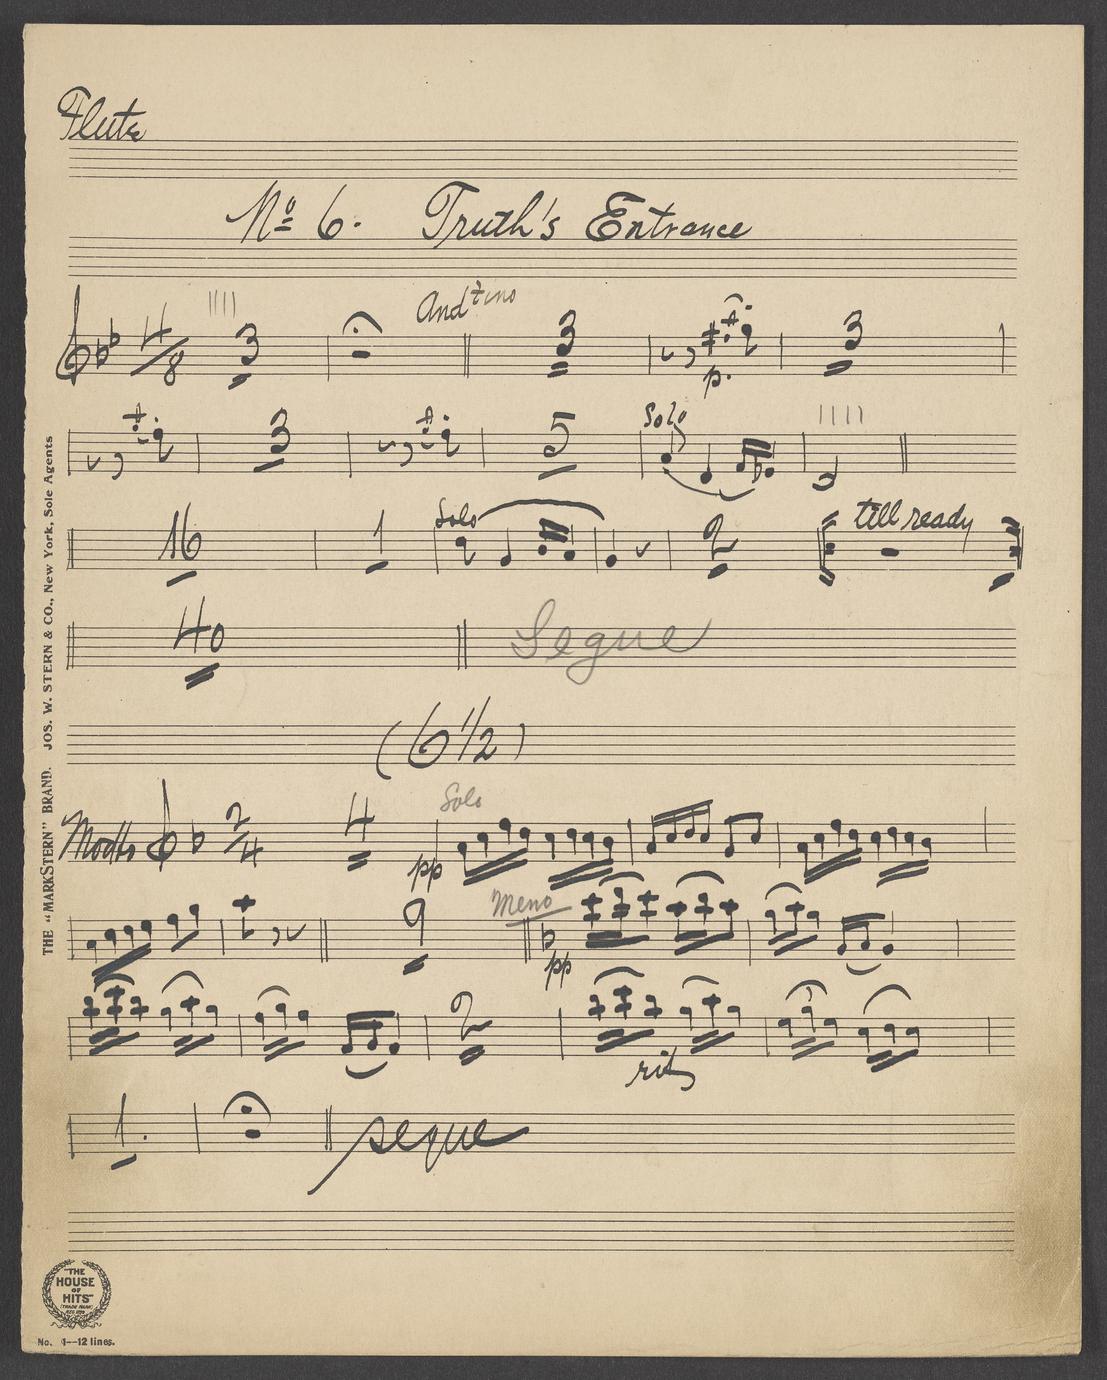 Flute
No 6. Truth's Entrance
4/8 3 Andtino 3 p. 3
3 5 Solo
16 1 Solo 2 till ready
40 Segue
(6 1/2)
Modto 2/4 4 pp Solo
9 Meno pp
2 rit
1. segue
THE "MARKSTERN" BRAND. JOS. W. STERN & CO., New York, Sole Agents
"THE
HOUSE
OF
HITS"
No. 1--12 lines.